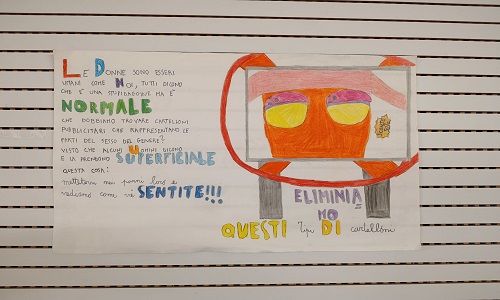 LE DONNE SONO ESSERI
UMANI COME NOI, TUTTI DICONO
CHE È UNA STUPIDAGGINE MA È
NORMALE
CHE DOBBIAMO TROVARE CARTELLONI
PUBBLICITARI CHE RAPPRESENTANO LE
PARTI DEL SESSO DEL GENERE?
VISTO CHE ALCUNI UOMINI DICONO
E LA PRENDONO SUPERFICIALE
QUESTA COSA!
mettetevi nei panni loro e
vediamo come vi SENTITE!!!
ELIMINIA
MO
QUESTI Tipi DI cartelloni